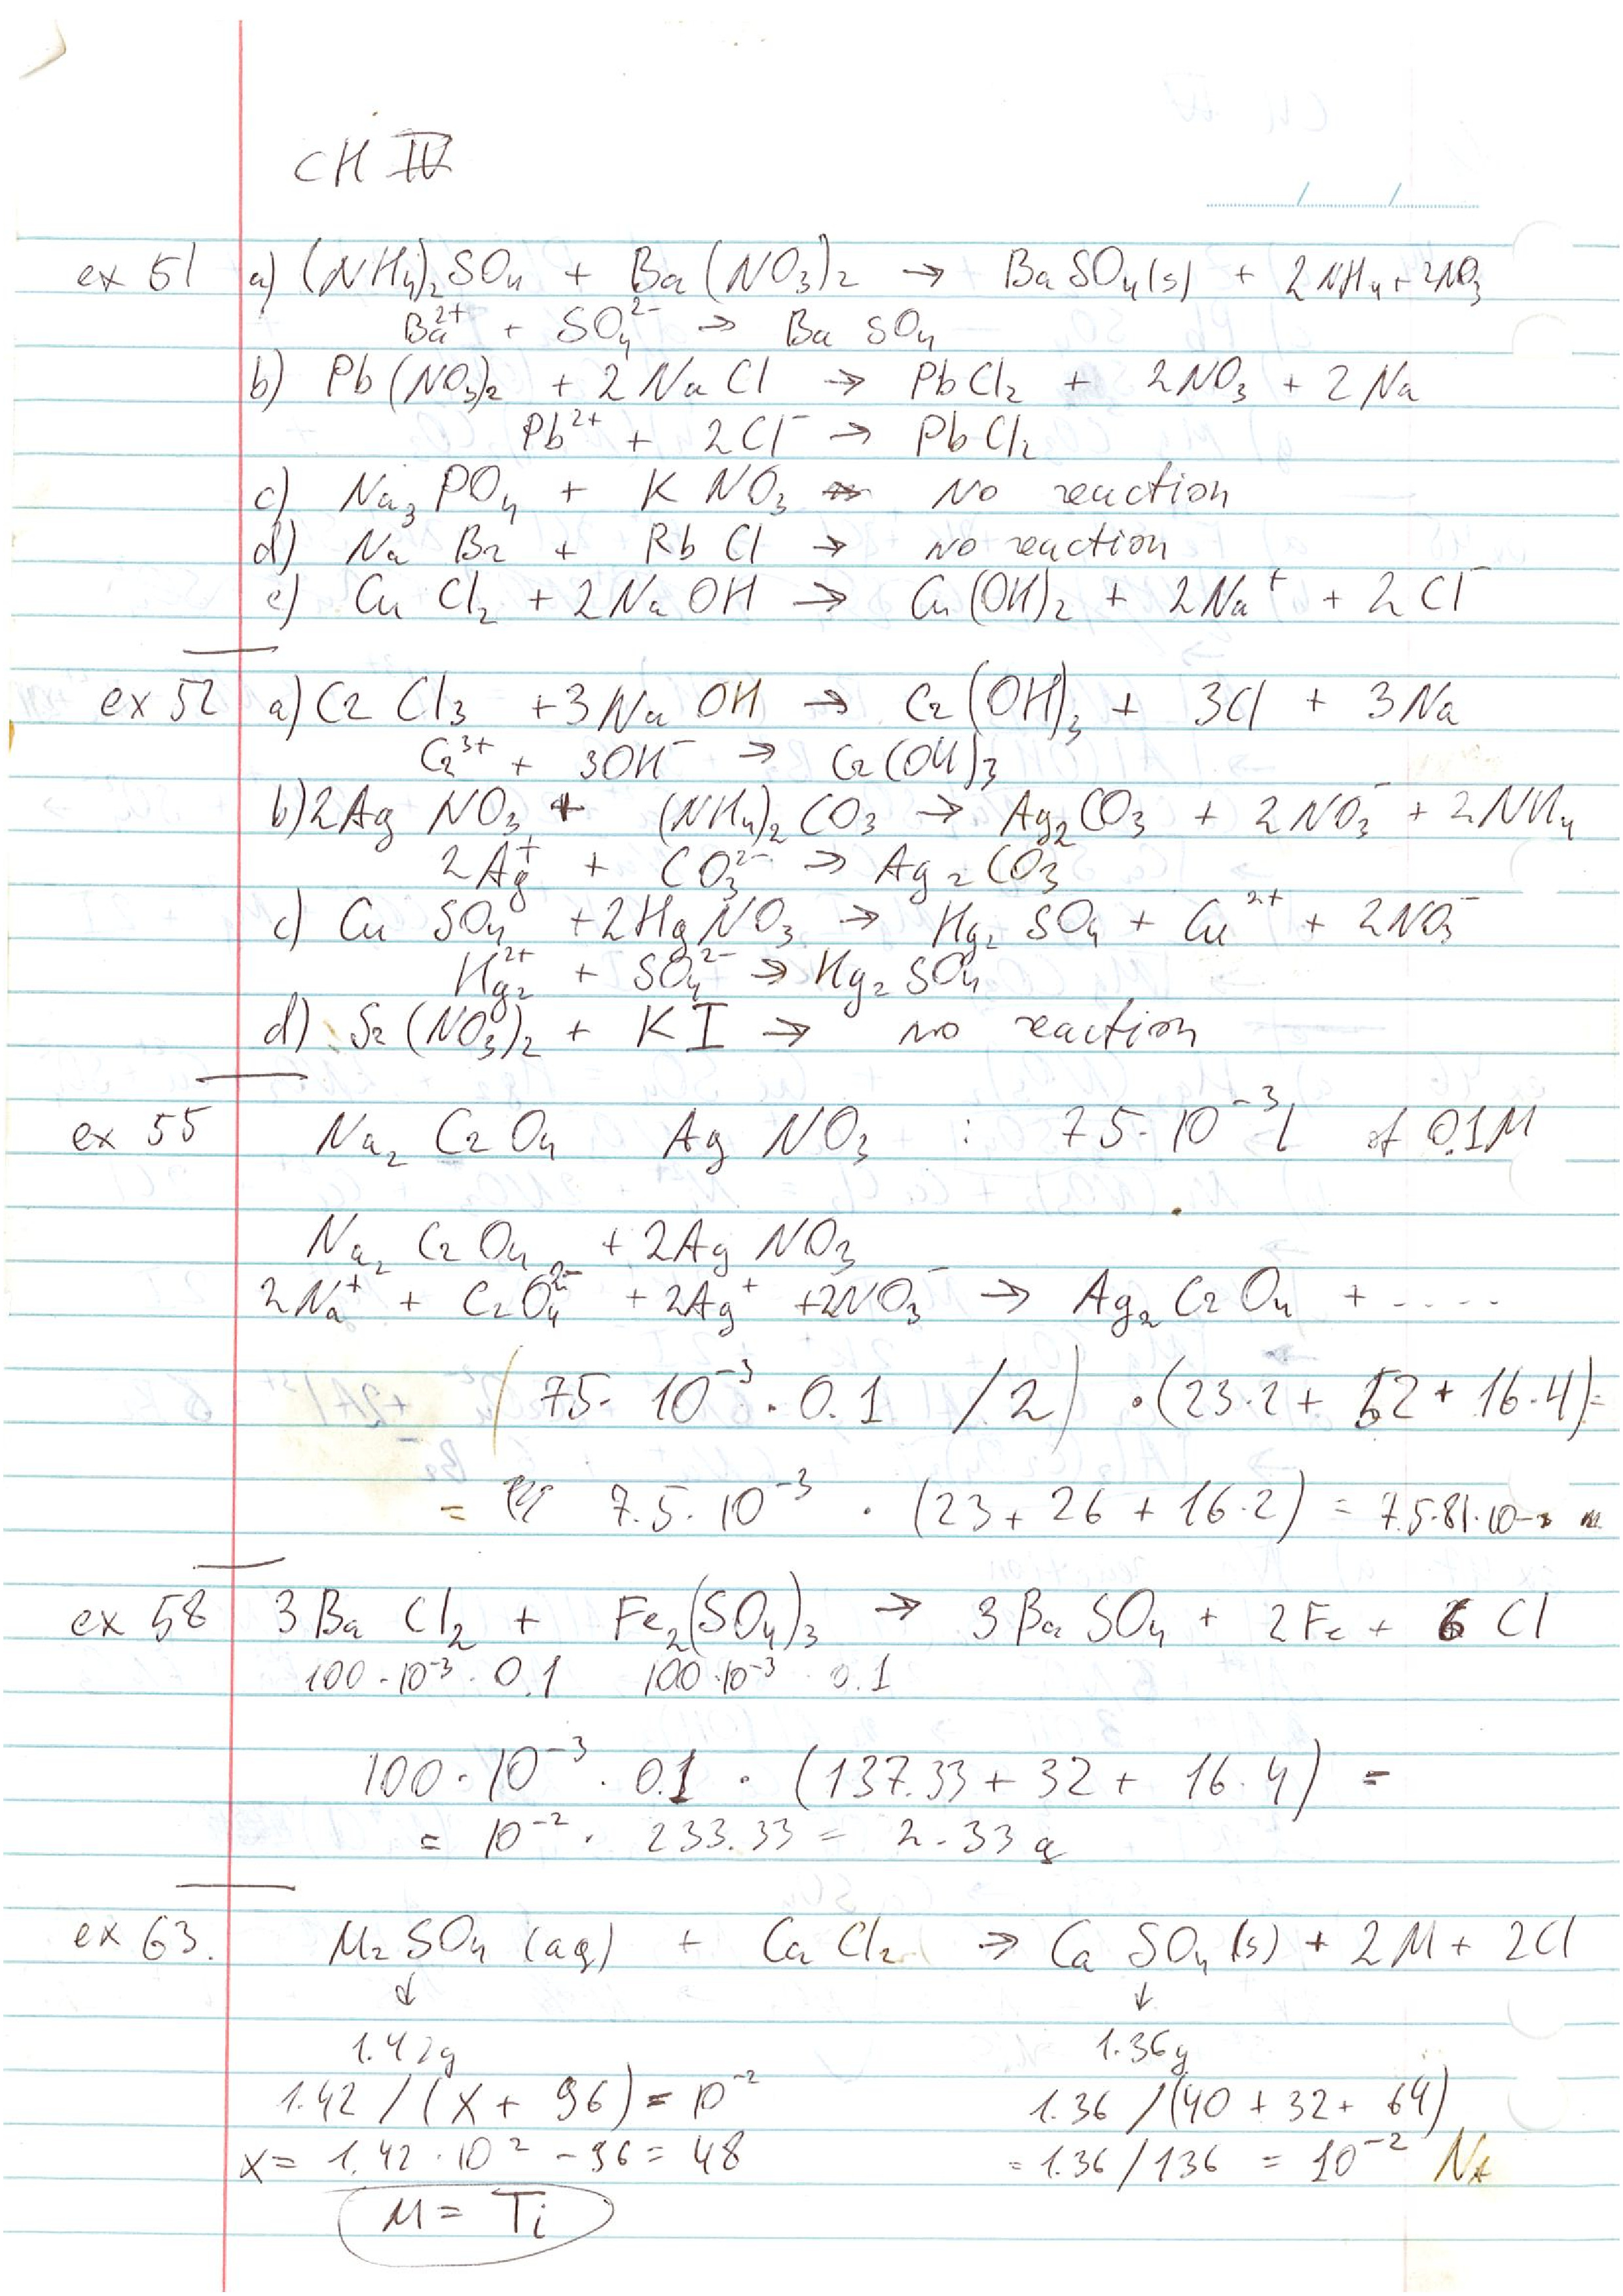 CH IV
ex 51 a) (NH4)2 SO4 + Ba (NO3)2 → Ba SO4 (s) + 2 NH4 + 2NO3
Ba2+ + SO4 2- → Ba SO4
b) Pb (NO3)2 + 2 Na Cl → Pb Cl2 + 2NO3 + 2 Na
Pb2+ + 2Cl- → Pb Cl2
c) Na3 PO4 + K NO3 → No reaction
d) Na Br + Rb Cl → no reaction
e) Cu Cl2 + 2 Na OH → Cu (OH)2 + 2Na+ + 2 Cl-
ex 52 a) Cr Cl3 + 3 Na OH → Cr (OH)3 + 3Cl + 3Na
Cr3+ + 3OH- → Cr (OH)3
b) 2Ag NO3 + (NH4)2 CO3 → Ag2 CO3 + 2 NO3- + 2 NH4
2 Ag+ + CO3 2- → Ag2 CO3
c) Cu SO4 + 2Hg NO3 → Hg2 SO4 + Cu2+ + 2NO3-
Hg2 2+ + SO4 2- → Hg2 SO4
d) Sr (NO3)2 + K I → no reaction
ex 55 Na2 Cr O4 Ag NO3 : 75·10-3 l of 0.1M
Na2 Cr O4 + 2Ag NO3
2 Na+ + Cr O4 2- + 2Ag+ + 2NO3- → Ag2 Cr O4 + ....
(75·10-3 · 0.1 /2) · (23·2 + 52 + 16·4) =
= 7.5·10-3 · (23 + 26 + 16·2) = 7.5·81·10-3
ex 58 3 Ba Cl2 + Fe2 (SO4)3 → 3 Ba SO4 + 2Fe + 6 Cl
100·10-3 · 0.1 100·10-3 · 0.1
100·10-3 · 0.1 · (137.33 + 32 + 16·4) =
= 10-2 · 233.33 = 2.33 g
ex 63. M2 SO4 (aq) + Ca Cl2 → Ca SO4 (s) + 2M + 2Cl
↓ ↓
1.42g 1.36g
1.42 / (x + 96) = 10-2 1.36 / (40 + 32 + 64)
x = 1.42·10 2 - 96 = 48 = 1.36 / 136 = 10-2
M = Ti